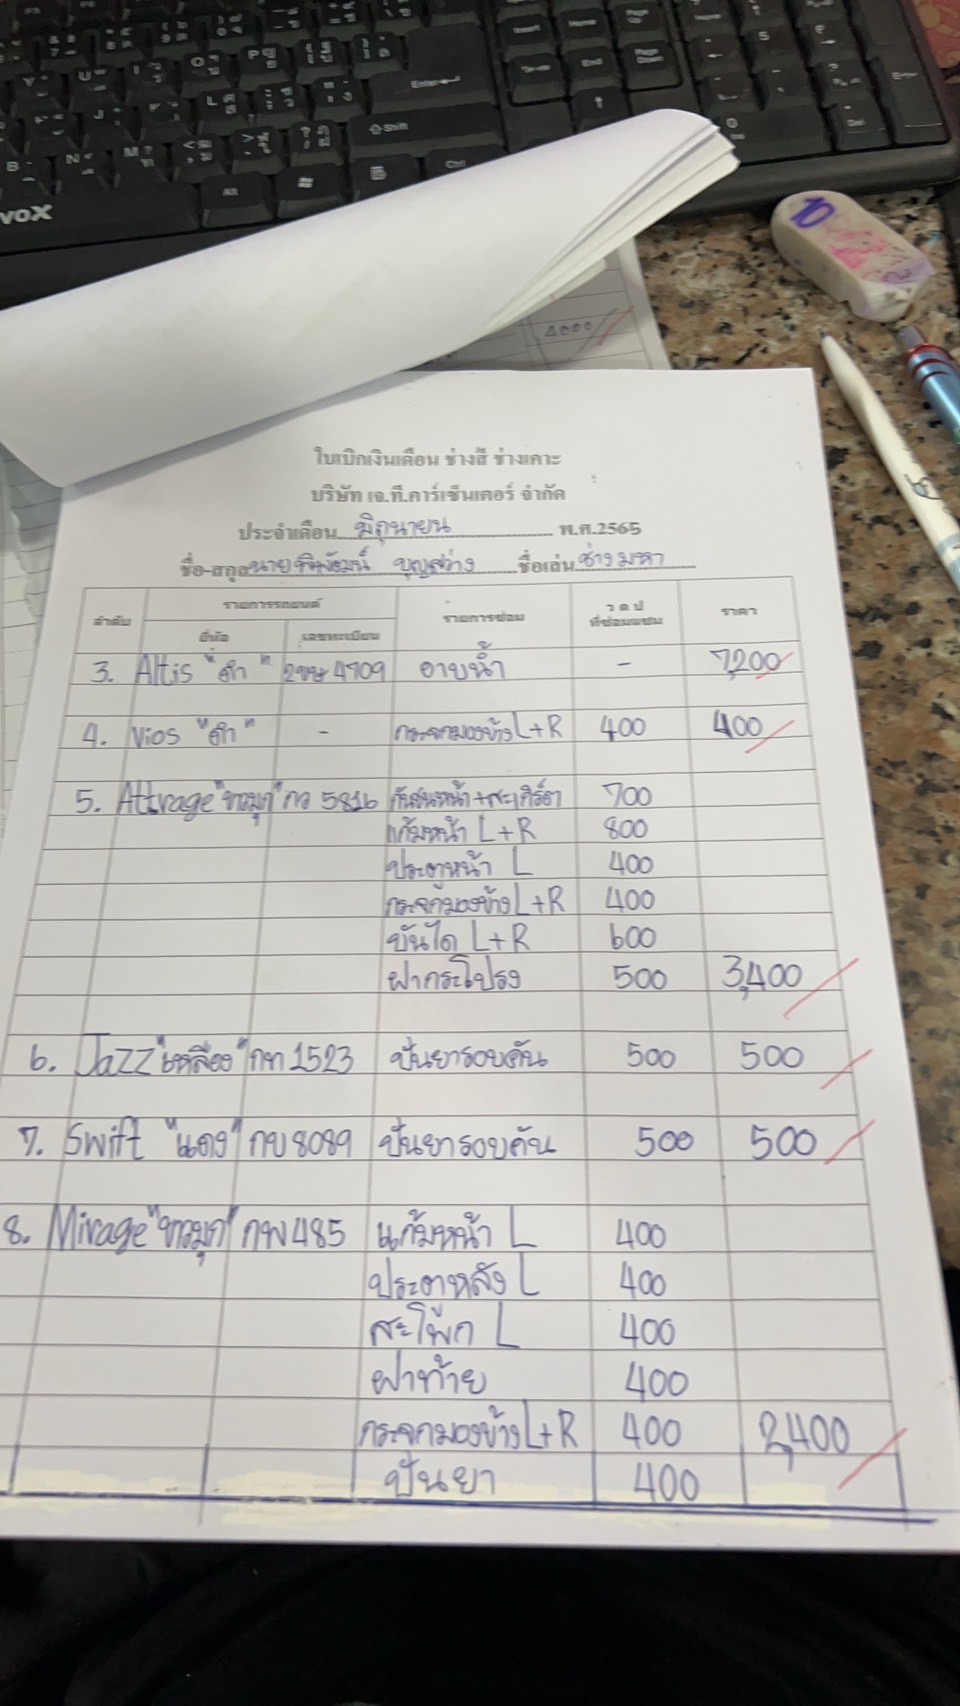 ใบเบิกเงินเดือน ช่างสี ช่างเคาะ
บริษัท เจ.ที.คาร์เซ็นเตอร์ จำกัด
ประจำเดือน มิถุนายน พ.ศ.2565
ชื่อ-สกุล นายพิพัฒน์ ชื่อเล่น ช่างมหา
ลำดับ รายการรถยนต์ รายการซ่อม ว ด ป ที่ซ่อมแซม ราคา
ยี่ห้อ เลขทะเบียน
3. Altis "ดำ" 4709 อาบน้ำ - 7,200
4. Vios "ดำ" - กระจกมองข้าง L+R 400 400
5. Attrage "ขาวมุก" กว 5816 กันชนหน้า+สเกิร์ต 700
แก้มหน้า L+R 800
ประตูหน้า L 400
กระจกมองข้าง L+R 400
บันได L+R 600
ฝากระโปรง 500 3,400
6. Jazz "เหลือง" กท 1523 ปั่นยารอบคัน 500 500
7. Swift "แดง" กบ 8089 ปั่นยารอบคัน 500 500
8. Mirage "ขาวมุก" กพ 485 แก้มหน้า L 400
ประตูหลัง L 400
สะโพ๊ก L 400
ฝาท้าย 400
กระจกมองข้าง L+R 400 2,400
ปั่นยา 400
4000
Enter
Shift
Ctrl
Alt
Home
End
10